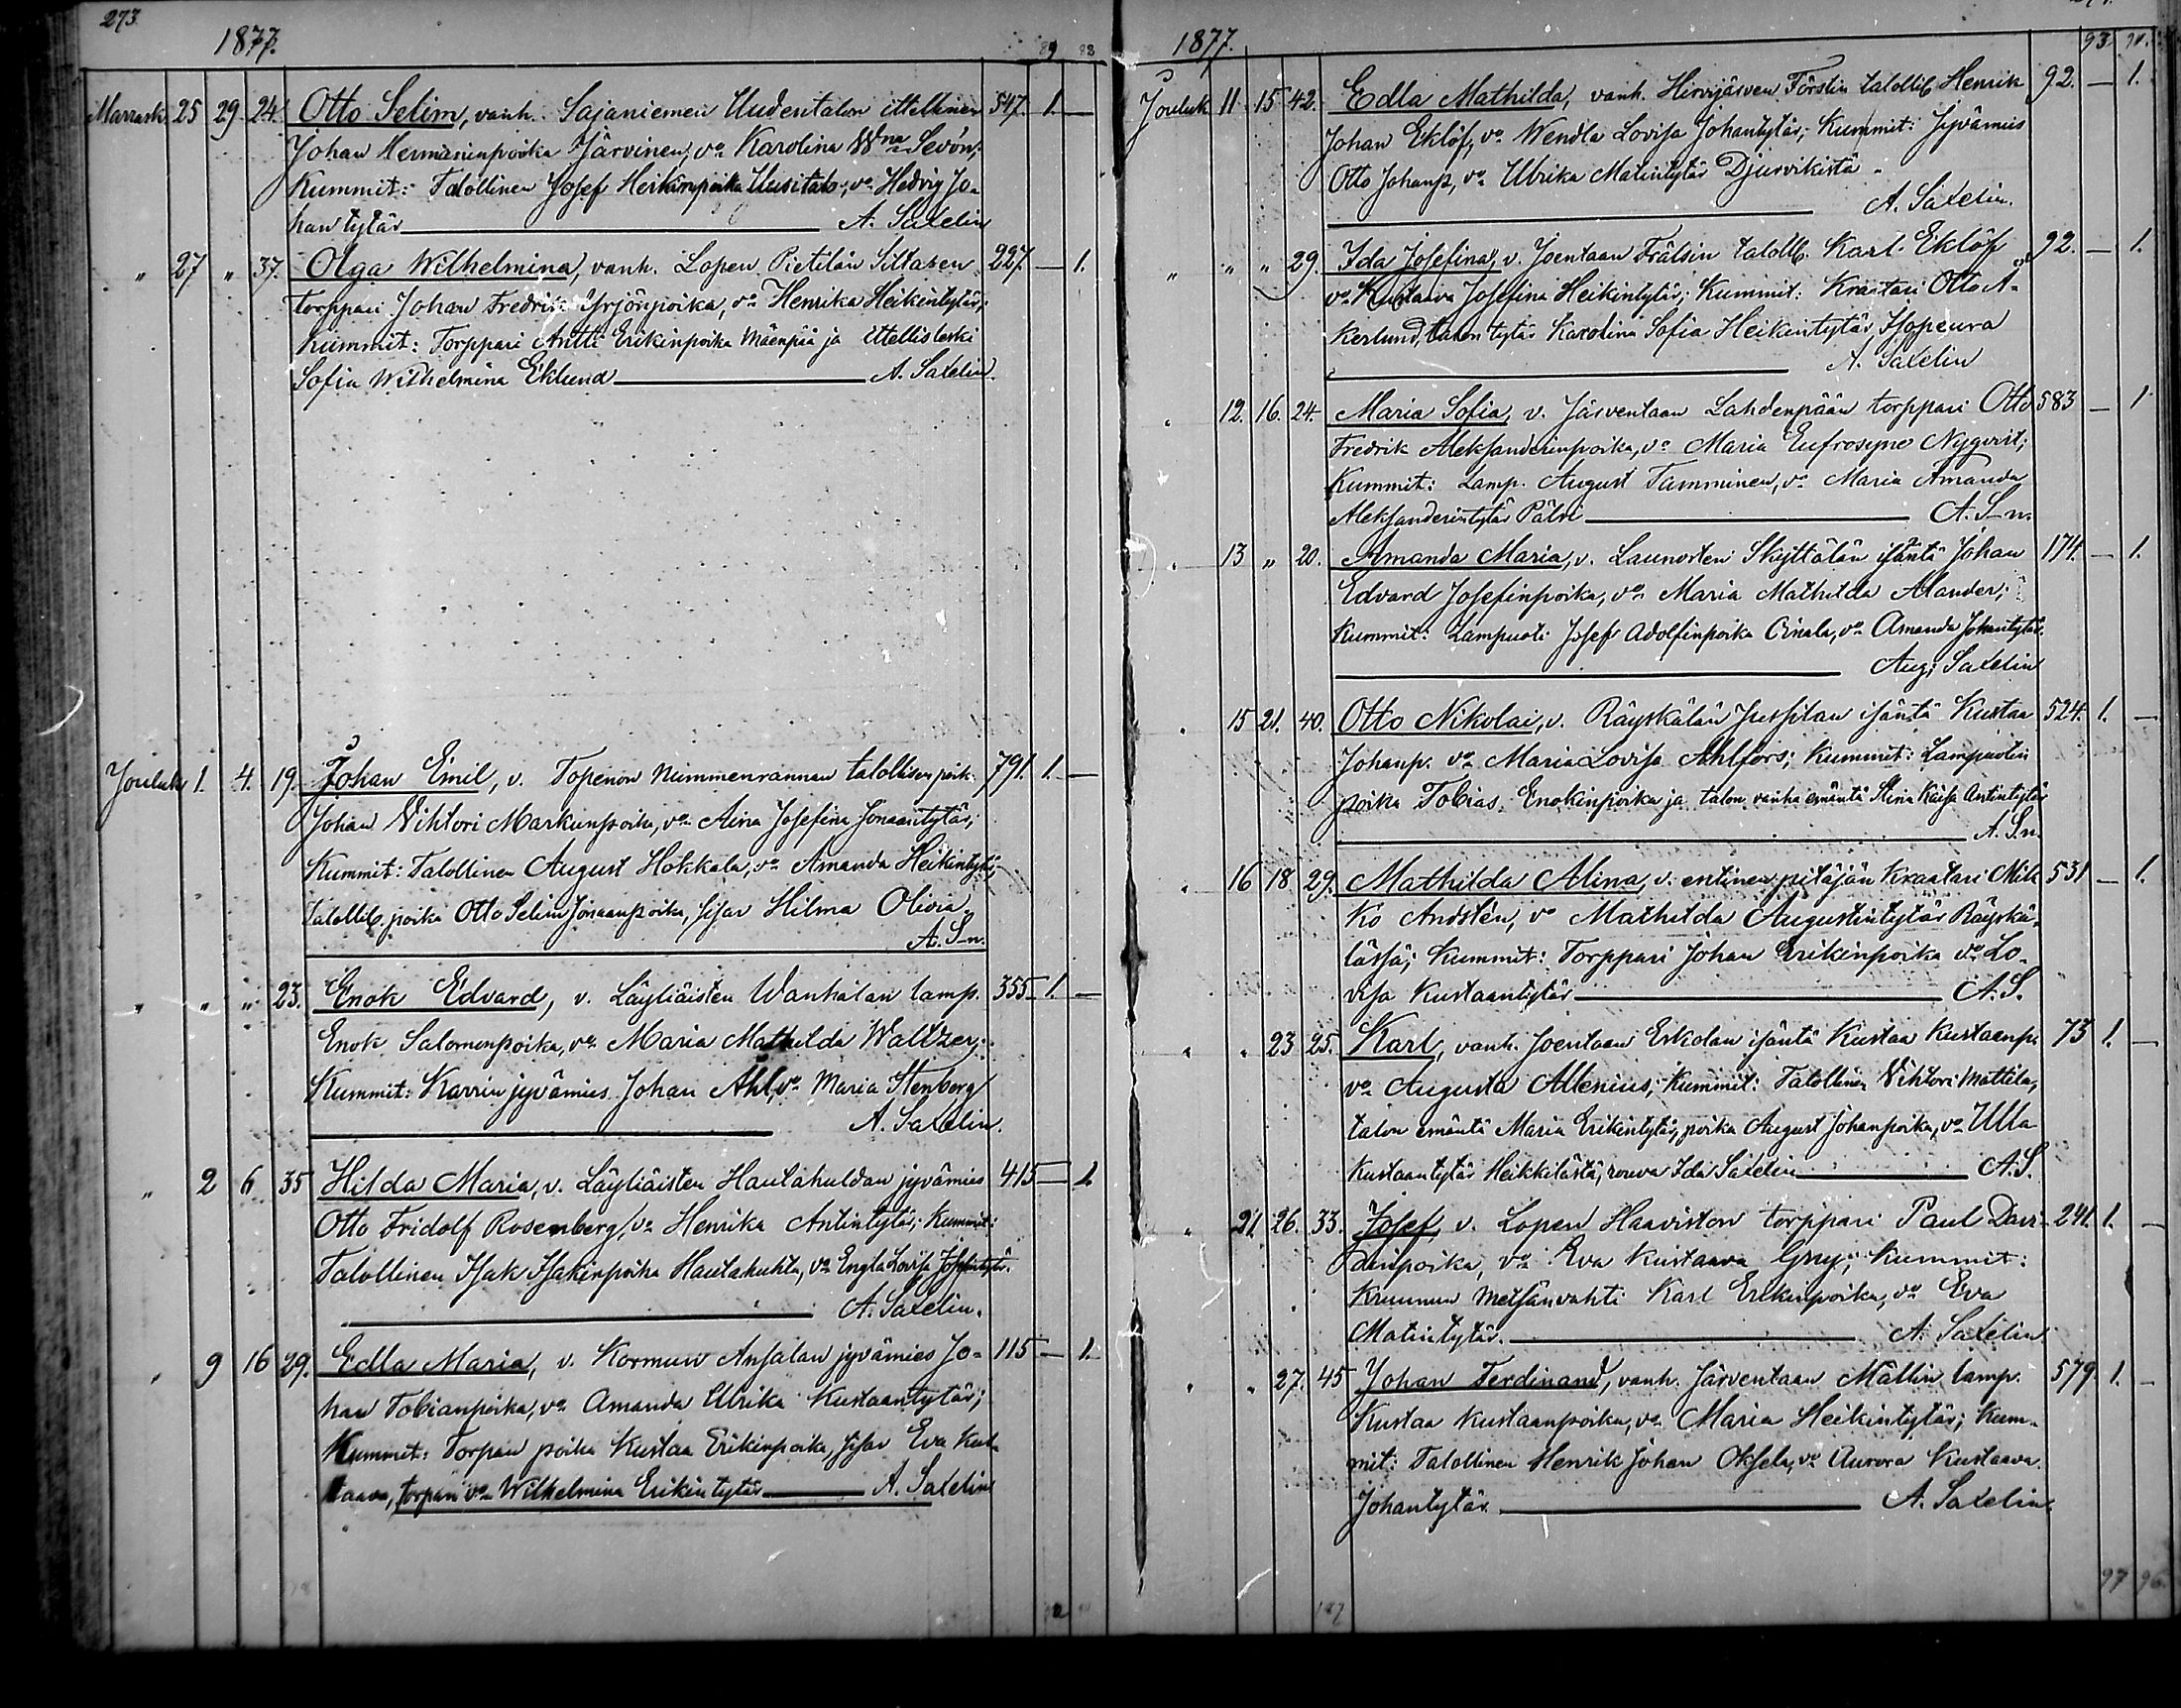 273.
1877.
89 88
Marrask. 25 29. 24. Otto Selim, vanh. Sajaniemen Uudentalon ittellinen 547. 1. —
Johan Hermaninpoika Järvinen, vo Karolina Wna Sevón;
Kummit: Talollinen Josef Heikinpoika Uusitalo, vo Hedvig Jo-
hantytär A. Saxelin
" 27 " 37. Olga Wilhelmina, vanh. Lopen Pietilän Siltasen 227. — 1.
torppari Johan Fredrik Yrjönpoika, vo Henrika Heikintytär;
Kummit: Torppari Antti Erikinpoika Mäenpää ja Itellisleski
Sofia Wilhelmina Eklund A. Saxelin.
Jouluk. 1. 4. 19. Johan Emil, v. Topenon Nummenrannan talollisen poik. 791. 1. —
Johan Vihtori Markunpoika, vo Aina Josefina Jonaantytär;
Kummit: Talollinen August Hokkala, vo Amanda Heikintytär,
Talollis. poika Otto Selim Jonaanpoika, sisar Hilma Olivia
A. S-n.
" " " 23. Enok Edvard, v. Läyliäisten Wanhalan lamp. 355. 1. —
Enok Salomonpoika, vo Maria Mathilda Waltzer;
Kummit: Karrin jyvämies Johan Ahl, vo Maria Stenberg
A. Saxelin.
" 2 6 35 Hilda Maria, v. Läyliäisten Hautakuldan jyvämies 415 — 1.
Otto Fridolf Rosenberg, vo Henrika Antintytär; Kummit:
Talollinen Isak Isakinpoika Hautakulta, vo Engla Lovisa Josefintytär.
A. Saxelin.
" 9 16 29. Edla Maria, v. Kormun Ansalan jyvämies Jo- 115 — 1.
han Tobianpoika, vo Amanda Ulrika Kustaantytär;
Kummit: Torpan poika Kustaa Erikinpoika, sisar Eva Kus-
taava, torpan vo Wilhelmina Erikintytär A. Saxelin
1877.
93 91.
Jouluk 11 15 42. Edla Mathilda, vanh. Hirvijärven Förstin talollis Henrik 92. — 1.
Johan Eklöf, vo Wendla Lovisa Johantytär; Kummit: Jyvämies
Otto Johanp, vo Ulrika Matintytär Djurvikistä.
A. Saxelin.
" " " 29. Ida Josefina, v. Joentaan Frälsin talollis. Karl Eklöf 92. — 1.
vo Kustaava Josefina Heikintytär; Kummit: Kraatari Otto A-
kerlund, talon tytär Karolina Sofia Heikintytär Isopeura
A. Saxelin
" 12. 16. 24. Maria Sofia, v. Järventaan Lahdenpään torppari Otto 583 — 1
Fredrik Aleksanderinpoika, vo Maria Eufrosyne Nyqvist;
Kummit: Lamp. August Tamminen, vo Maria Amanda
Aleksanderintytär Pälsi A. S-n.
" 13 " 20. Amanda Maria, v. Launosten Skyttälän isäntä Johan 174. — 1.
Edvard Josefinpoika, vo Maria Mathilda Alander;
Kummit: Lampuoti Josef Adolfinpoika Oinala, vo Amanda Johantytär.
Aug. Saxelin
" 15 21. 40. Otto Nikolai, v. Räyskälän Jussilan isäntä Kustaa 524. 1. —
Johanp. vo Maria Lovisa Ahlfors; Kummit: Lampuotin
poika Tobias Enokinpoika ja talon vanha emäntä Stina Kaisa Antintytär
A. S-n.
" 16 18 29. Mathilda Alina, v. entinen pitäjän kraatari Mik 531 — 1.
ko Andstén, vo Mathilda Augustintytär Räyskä-
lässä; Kummit: Torppari Johan Erikinpoika vo Lo-
visa Kustaantytär A. S.
" " 23 25. Karl, vanh. Joentaan Erkolan isäntä Kustaa Kustaanp. 73 1. —
vo Augusta Allenius; Kummit: Talollinen Vihtori Mattila,
talon emäntä Maria Erikintytär, poika August Johanpoika, vo Ulla
Kustaantytär Heikkilästä, rouva Ida Saxelin A. S.
" 21. 26. 33. Josef, v. Lopen Haaviston torppari Paul Davi- 241. 1. —
dinpoika, vo Eva Kustaava Grey; Kummit:
Kruunun metsänvahti Karl Erikinpoika, vo Eva
Matintytär. A. Saxelin
" " 27. 45 Johan Ferdinand, vanh. Järventaan Mällin lamp. 579. 1. —
Kustaa Kustaanpoika, vo Maria Heikintytär; Kum-
mit: Talollinen Henrik Johan Oksela, vo Aurora Kustaava
Johantytär A. Saxelin.
97 96.